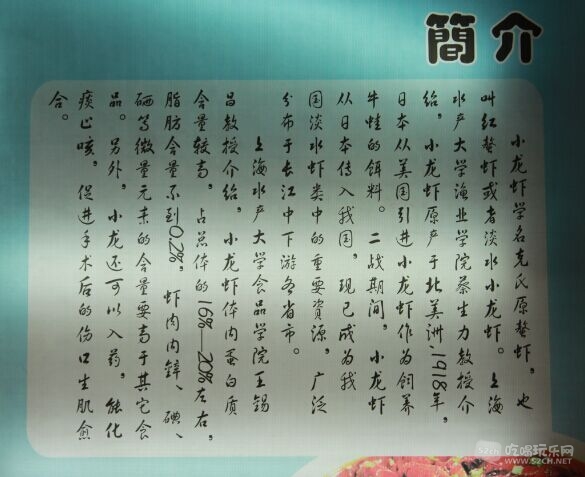 簡介
小龙虾学名克氏原螯虾，也
叫红螯虾或者淡水小龙虾。上海
水产大学渔业学院蔡生力教授介
给，小龙虾原产于北美洲，1918年，
日本从美国引进小龙虾作为饲养
牛蛙的饵料。二战期间，小龙虾
从日本传入我国，现已成为我
国淡水虾类中的重要資源，广泛
分布于长江中下游各省市。
上海水产大学食品学院王锡
昌教授介给，小龙虾体内蛋白质
含量较高，占总体的16%—20%左右，
脂肪含量不到0.2%，虾肉内鋅、碘、
硒等微量元素的含量要高于其它食
品。另外，小龙还可以入药，能化
痰止咳，促进手术后的伤口生肌愈
合。
吃喝玩乐网
www.52CH.NET